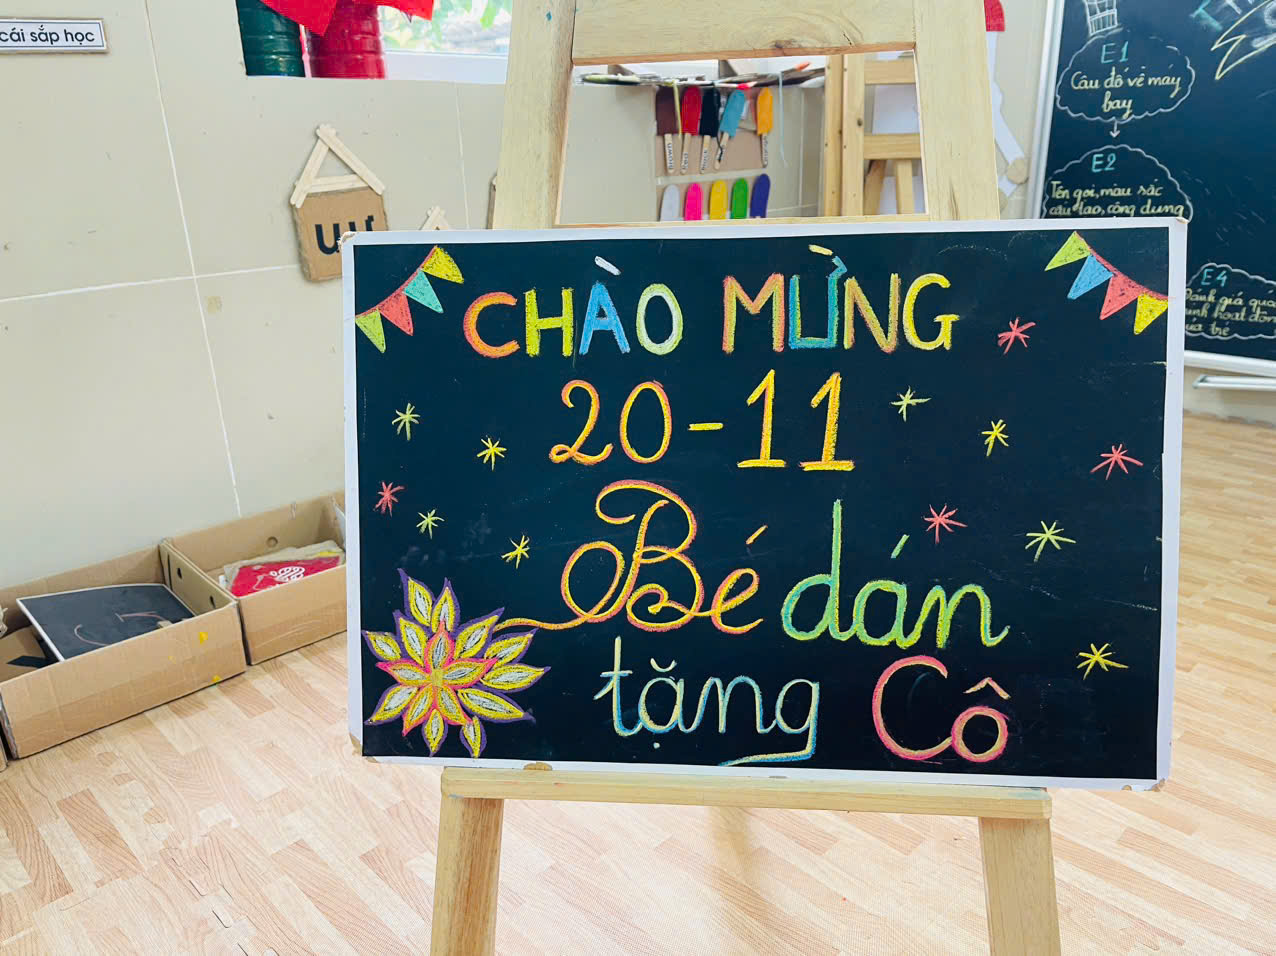 cái sắp học
E1
Câu đố về máy
bay
E2
Tên gọi, màu sắc
cấu tạo, công dụng
E4
Đánh giá quá
hoạt động
trẻ
ư
CHÀO MỪNG
20-11
Bé dán
tặng Cô